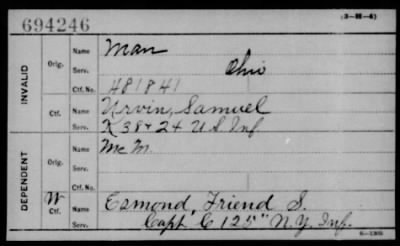 694246
(3-M-6)
INVALID
Orig.
Name
Man
Serv.
Ohio
Ctf. No.
481841
Ctf.
Name
Urvin, Samuel
Serv.
K 38 & 24 U S Inf
DEPENDENT
Orig.
Name
McM.
Serv.
Ctf. No.
W
Ctf.
Name
Esmond, Friend S.
Serv.
Capt C 125" N.Y. Inf.